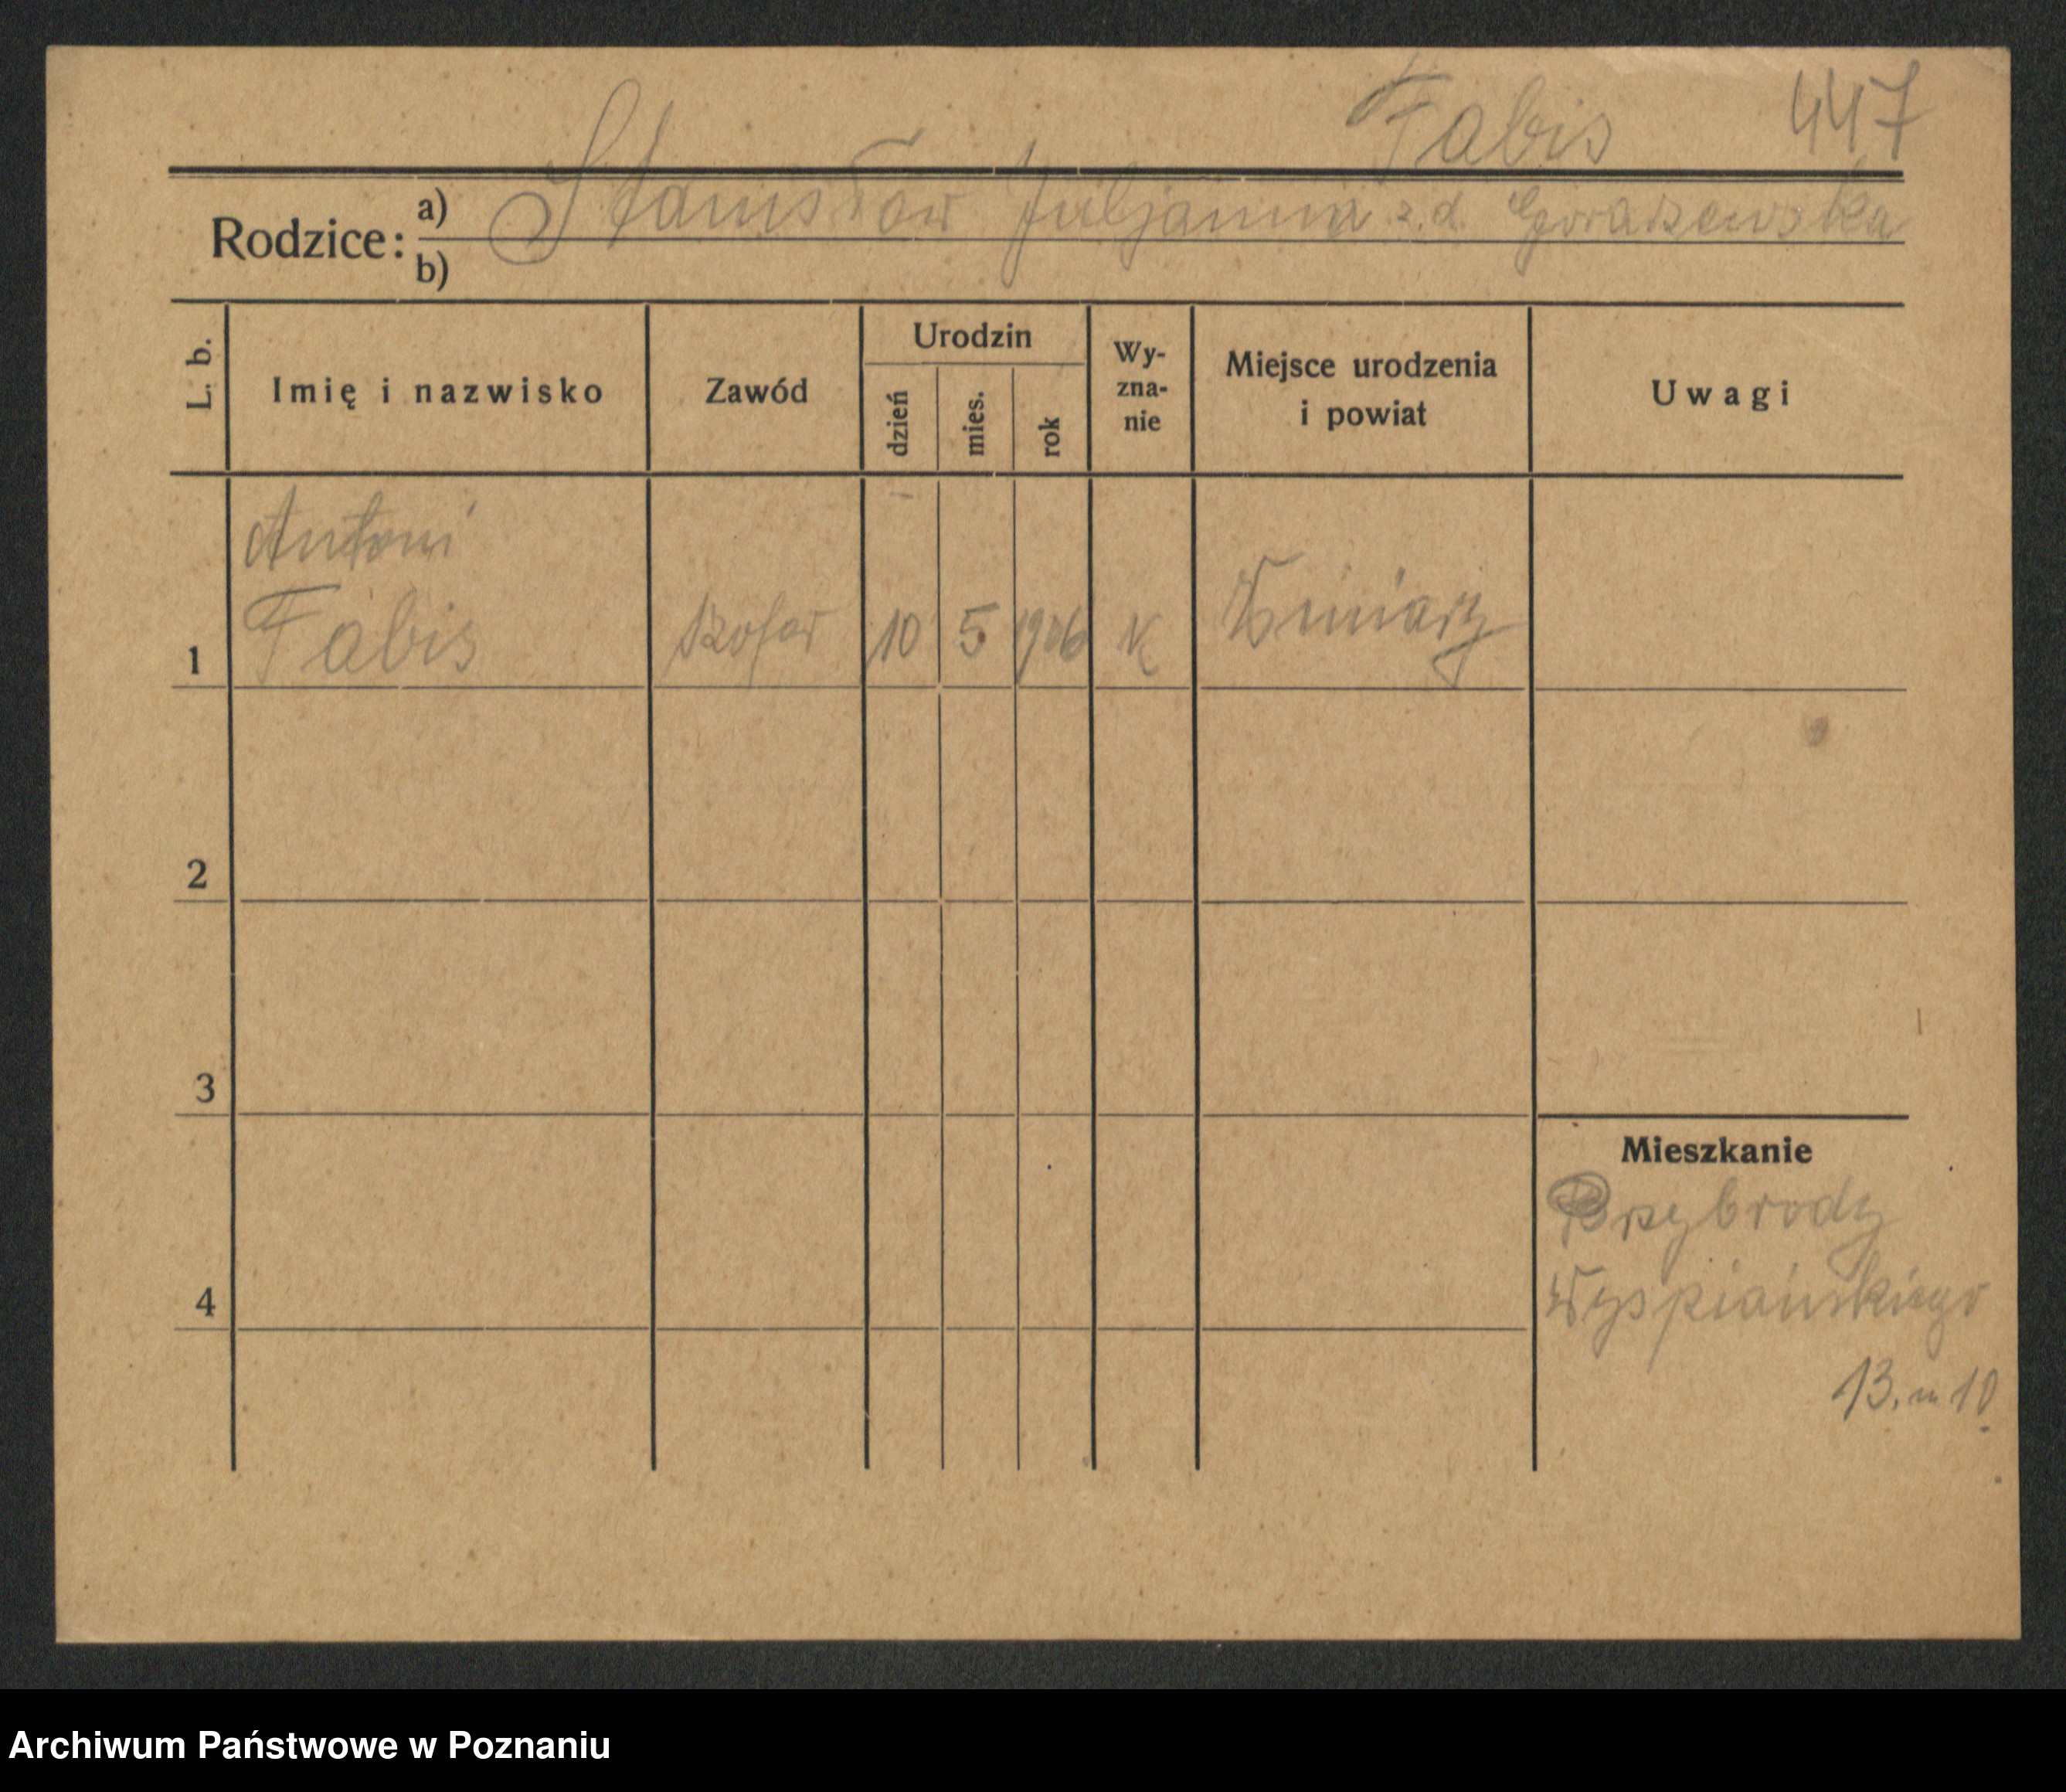 Fabis 447
Rodzice: a) Stanisław Juljanna z.d. Goraszewska
b)
L. b. Imię i nazwisko Zawód Urodzin dzień mies. rok Wy-zna-nie Miejsce urodzenia i powiat Uwagi
Antoni
1 Fabis szofer 10 5 1906 K
2
3
Mieszkanie
Przybrody
4 Wyspiańskiego
13. m 10
Archiwum Państwowe w Poznaniu